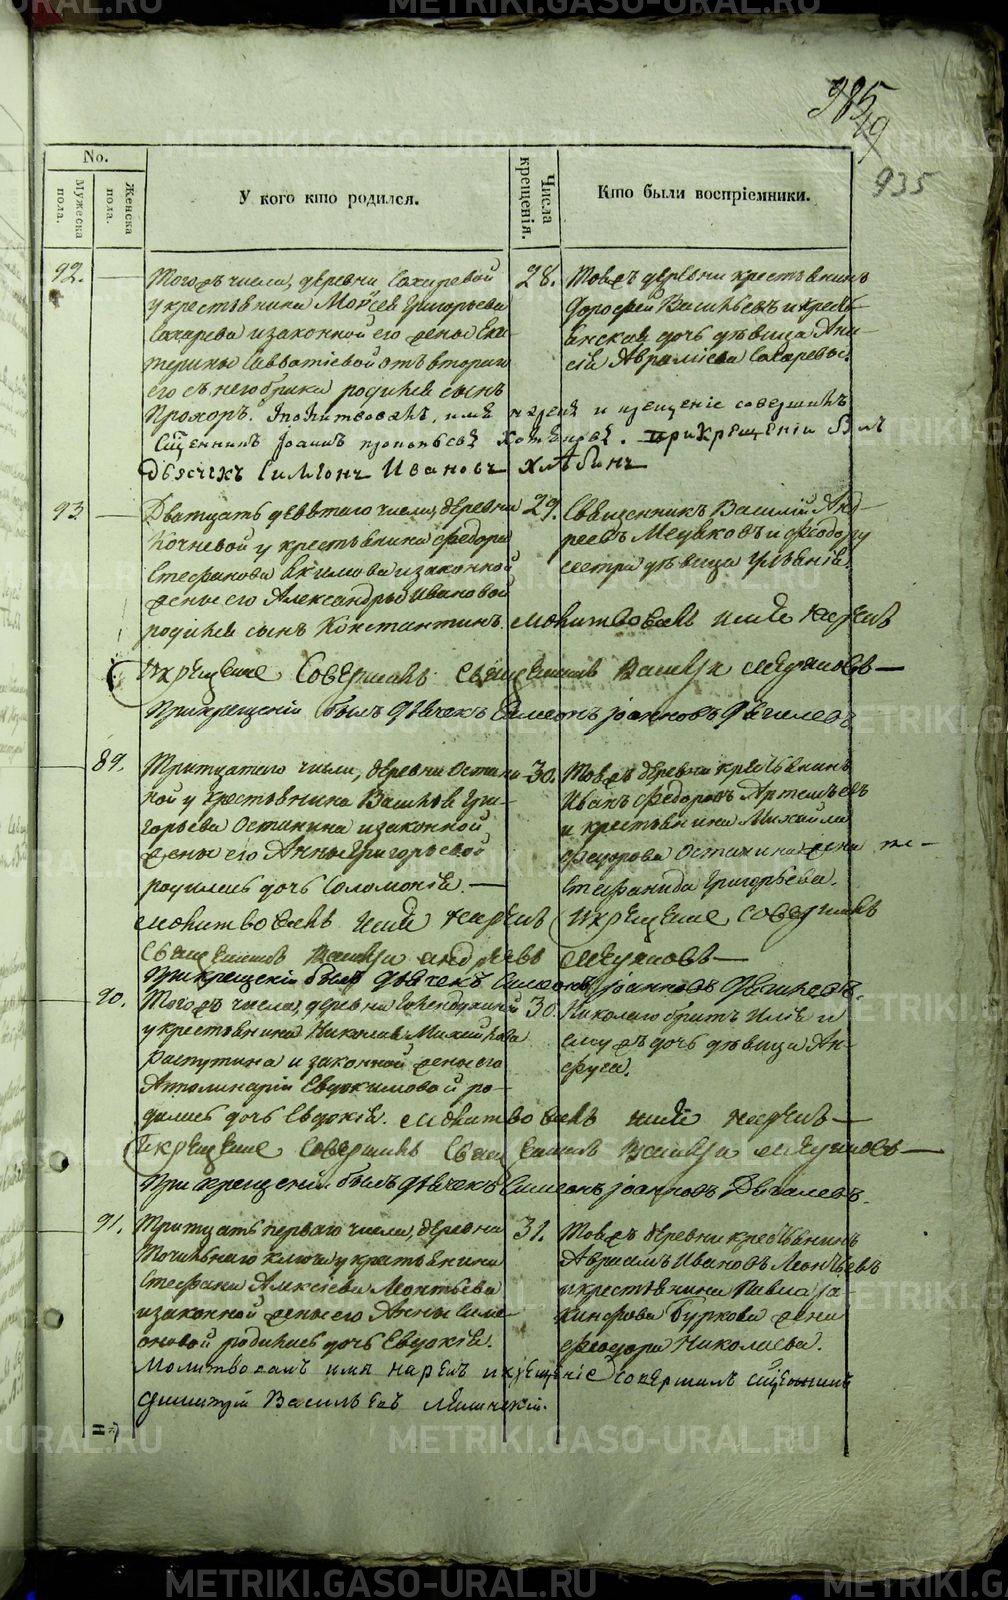 METRIKI.GASO-URAL.RU
985
19
935
No.
Мужеска пола.
Женска пола.
У кого кто родился.
Числа крещенія.
Кто были воспріемники.
92.
Тогожъ числа, деревни Сахаревой
у крестьянина Моисея Григорьева
Сахарева и законной его жены Ека-
терины Савватіевой отъ втораго
его съ него брака родился сынъ
Прохоръ. молитвовалъ, имя нарекъ и крещеніе совершилъ
Сщенникъ Іоаннъ. При Крещеніи былъ
Дьячекъ Симеонъ Ивановъ Хлѣбинъ
28.
Тояжъ деревни крестьянинъ
Дорофей Васильевъ и кресть-
янская дочь дѣвица Ани-
сія Аврамиева Сахаревы.
93.
Дватцать девятаго числа, деревни
Кочневой у крестьянина Федора
Стефанова Акимова и законной
жены его Александры Ивановой
родился сынъ Константинъ. молитвовалъ имя нарекъ
и крещеніе совершилъ священникъ Василій
При крещеніи былъ дьячекъ Симеонъ Іоанновъ Дягилевъ
29.
Священникъ Василій Анд-
реевъ и Феодору
сестра дѣвица Ульянія.
89.
Тритцатаго числа, деревни Остани-
ной у крестьянина Василья Гри-
горьева Останина и законной
жены его Анны Григорьевой
родилась дочь Соломонія.
молитвовалъ имя нарекъ и крещеніе совершилъ
священникъ Василій Андреевъ
При крещеніи былъ дьячекъ Симеонъ Іоанновъ Дягилевъ.
30.
Тояжъ деревни крестьянинъ
Иванъ Федоровъ Артемьевъ
и крестьянина Михайла
Федорова Останина жена
Стефанида Григорьева.
90.
Тогожъ числа, деревни
у крестьянина Николая Михайлова
Распутина и законной жены его
Аполинаріи Евдокимовой ро-
дилась дочь Евдокія. молитвовалъ имя нарекъ
и крещеніе совершилъ священникъ Василій
При крещеніи былъ дьячекъ Симеонъ Іоанновъ Дягилевъ.
30.
Николаю братъ Илія и
ему жъ дочь дѣвица Ан-
фуса.
91.
Тритцать перваго числа, деревни
Точильнаго ключа у крестьянина
Стефана Алексіева Леонтьева
и законной жены его Анны Симе-
оновой родилась дочь Евдокія.
Молитвовалъ имя нарекъ и крещеніе совершилъ сщенникъ
Димитрій Васильевъ
31.
Тояжъ деревни крестьянинъ
Авраамъ Ивановъ Леонтьевъ
и крестьянина Павла Іа-
кинфова Буркова жена
Феодора Николаева.